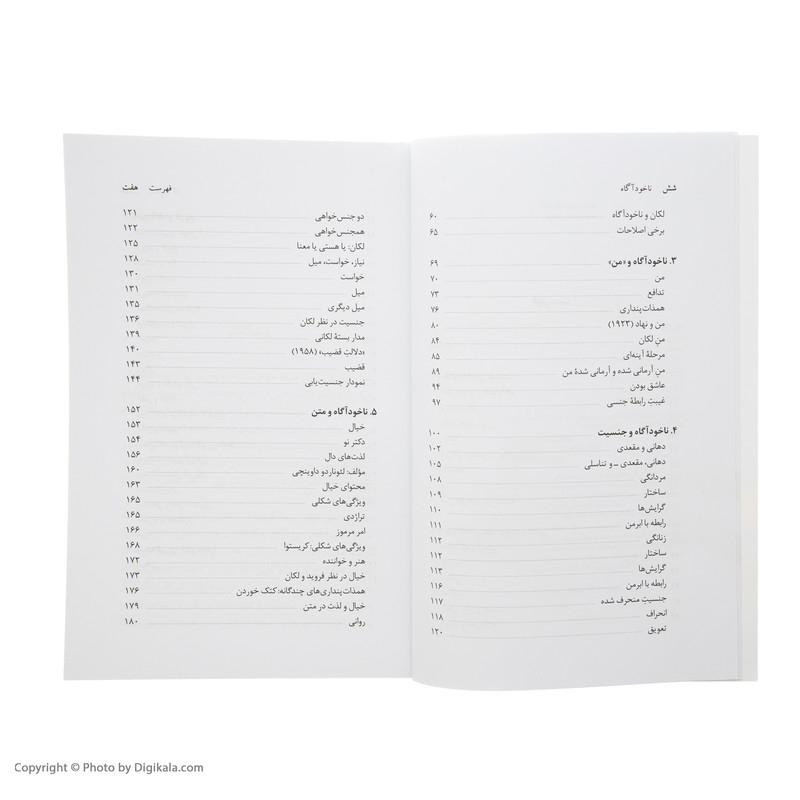 شش ناخودآگاه
لکان و ناخودآگاه ۶۰
برخی اصلاحات ۶۵
۳. ناخودآگاه و «من» ۶۹
من ۷۰
تدافع ۷۳
همذات‌پنداری ۷۶
من و نهاد (۱۹۲۳) ۸۰
منِ لکان ۸۴
مرحلهٔ آینه‌ای ۸۵
منِ آرمانی شده و آرمانی شدهٔ من ۸۹
عاشق بودن ۹۴
غیبتِ رابطهٔ جنسی ۹۷
۴. ناخودآگاه و جنسیت ۱۰۰
دهانی و مقعدی ۱۰۲
دهانی، مقعدی ــ و تناسلی ۱۰۵
مردانگی ۱۰۸
ساختار ۱۰۹
گرایش‌ها ۱۱۰
رابطه با ابرمن ۱۱۱
زنانگی ۱۱۲
ساختار ۱۱۲
گرایش‌ها ۱۱۳
رابطه با ابرمن ۱۱۶
جنسیتِ منحرف شده ۱۱۷
انحراف ۱۱۸
تعویق ۱۲۰
فهرست هفت
دو جنس‌خواهی ۱۲۱
همجنس‌خواهی ۱۲۲
لکان: یا هستی یا معنا ۱۲۵
نیاز، خواست، میل ۱۲۸
خواست ۱۳۰
میل ۱۳۱
میل دیگری ۱۳۵
جنسیت در نظر لکان ۱۳۶
مدار بستهٔ لکانی ۱۳۹
«دلالتِ قضیب» (۱۹۵۸) ۱۴۰
قضیب ۱۴۳
نمودار جنسیت‌یابی ۱۴۴
۵. ناخودآگاه و متن ۱۵۲
خیال ۱۵۳
دکتر نو ۱۵۴
لذت‌های دال ۱۵۶
مؤلف: لئوناردو داوینچی ۱۶۰
محتوای خیال ۱۶۳
ویژگی‌های شکلی ۱۶۵
تراژدی ۱۶۵
امر مرموز ۱۶۶
ویژگی‌های شکلی: کریستوا ۱۶۸
هنر و خواننده ۱۷۲
خیال در نظر فروید و لکان ۱۷۳
همذات‌پنداری‌های چندگانه: کتک خوردن ۱۷۶
خیال و لذت در متن ۱۷۹
روانی ۱۸۰
Copyright © Photo by Digikala.com